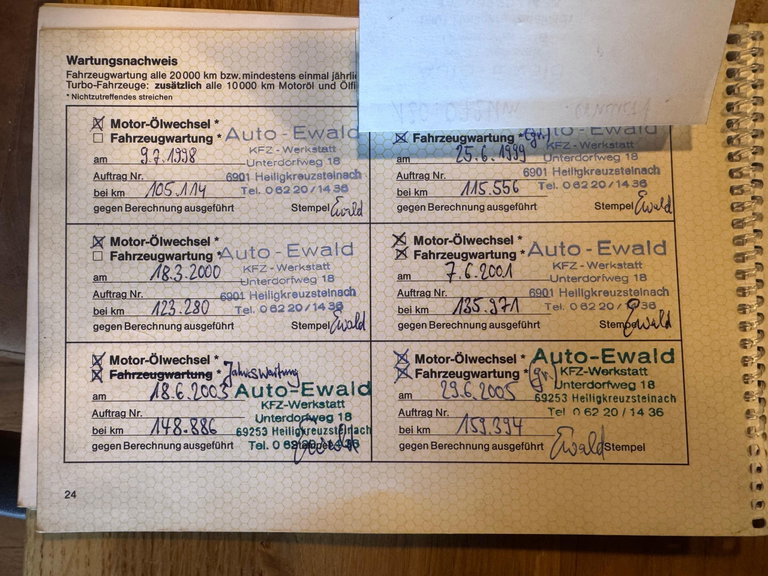 Wartungsnachweis
Fahrzeugwartung alle 20 000 km bzw. mindestens einmal jährli
Turbo-Fahrzeuge: zusätzlich alle 10 000 km Motoröl und Ölfi
* Nichtzutreffendes streichen
Motor-Ölwechsel *
Fahrzeugwartung *
Auto-Ewald
KFZ-Werkstatt
am 9.7.1998
Unterdorfweg 18
Auftrag Nr.
6901 Heiligkreuzsteinach
bei km 105.114
Tel. 0 62 20 / 14 36
gegen Berechnung ausgeführt Stempel Ewald
Fahrzeugwartung * (gr.)
KFZ-Werkstatt
am 25.6.1999
Unterdorfweg 18
Auftrag Nr.
6901 Heiligkreuzsteinach
bei km 115.556
Tel. 0 62 20 / 14 36
gegen Berechnung ausgeführt Stempel Ewald
Motor-Ölwechsel *
Fahrzeugwartung *
Auto-Ewald
KFZ-Werkstatt
am 18.3.2000
Unterdorfweg 18
Auftrag Nr.
6901 Heiligkreuzsteinach
bei km 123.280
Tel. 0 62 20 / 14 36
gegen Berechnung ausgeführt Stempel Ewald
Motor-Ölwechsel *
Fahrzeugwartung *
Auto-Ewald
KFZ-Werkstatt
am 7.6.2001
Unterdorfweg 18
Auftrag Nr.
6901 Heiligkreuzsteinach
bei km 135.971
Tel. 0 62 20 / 14 36
gegen Berechnung ausgeführt Stempel Ewald
Motor-Ölwechsel *
Fahrzeugwartung * Jahreswartung
am 18.6.2003
Auto-Ewald
KFZ-Werkstatt
Auftrag Nr.
Unterdorfweg 18
bei km 148.886
69253 Heiligkreuzsteinach
gegen Berechnung ausgeführt Stempel
Tel. 0 62 20 / 14 36
Motor-Ölwechsel *
Fahrzeugwartung * (gr.)
Auto-Ewald
KFZ-Werkstatt
am 29.6.2005
Unterdorfweg 18
69253 Heiligkreuzsteinach
Auftrag Nr.
Tel. 0 62 20 / 14 36
bei km 159.394
gegen Berechnung ausgeführt Ewald Stempel
24